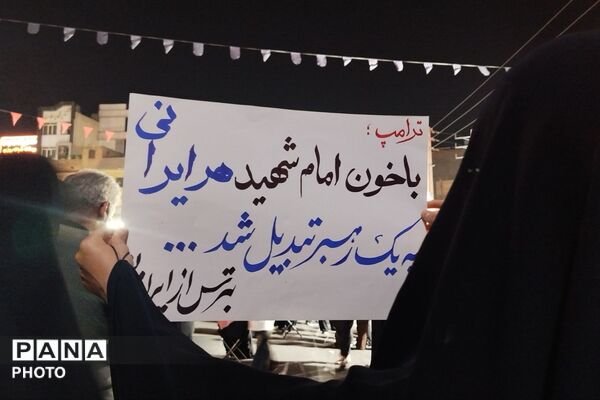 ترامپ ؛
با خون امام شهید هر ایرانی
به یک رهبر تبدیل شد ...
بترس از
PANA
PHOTO